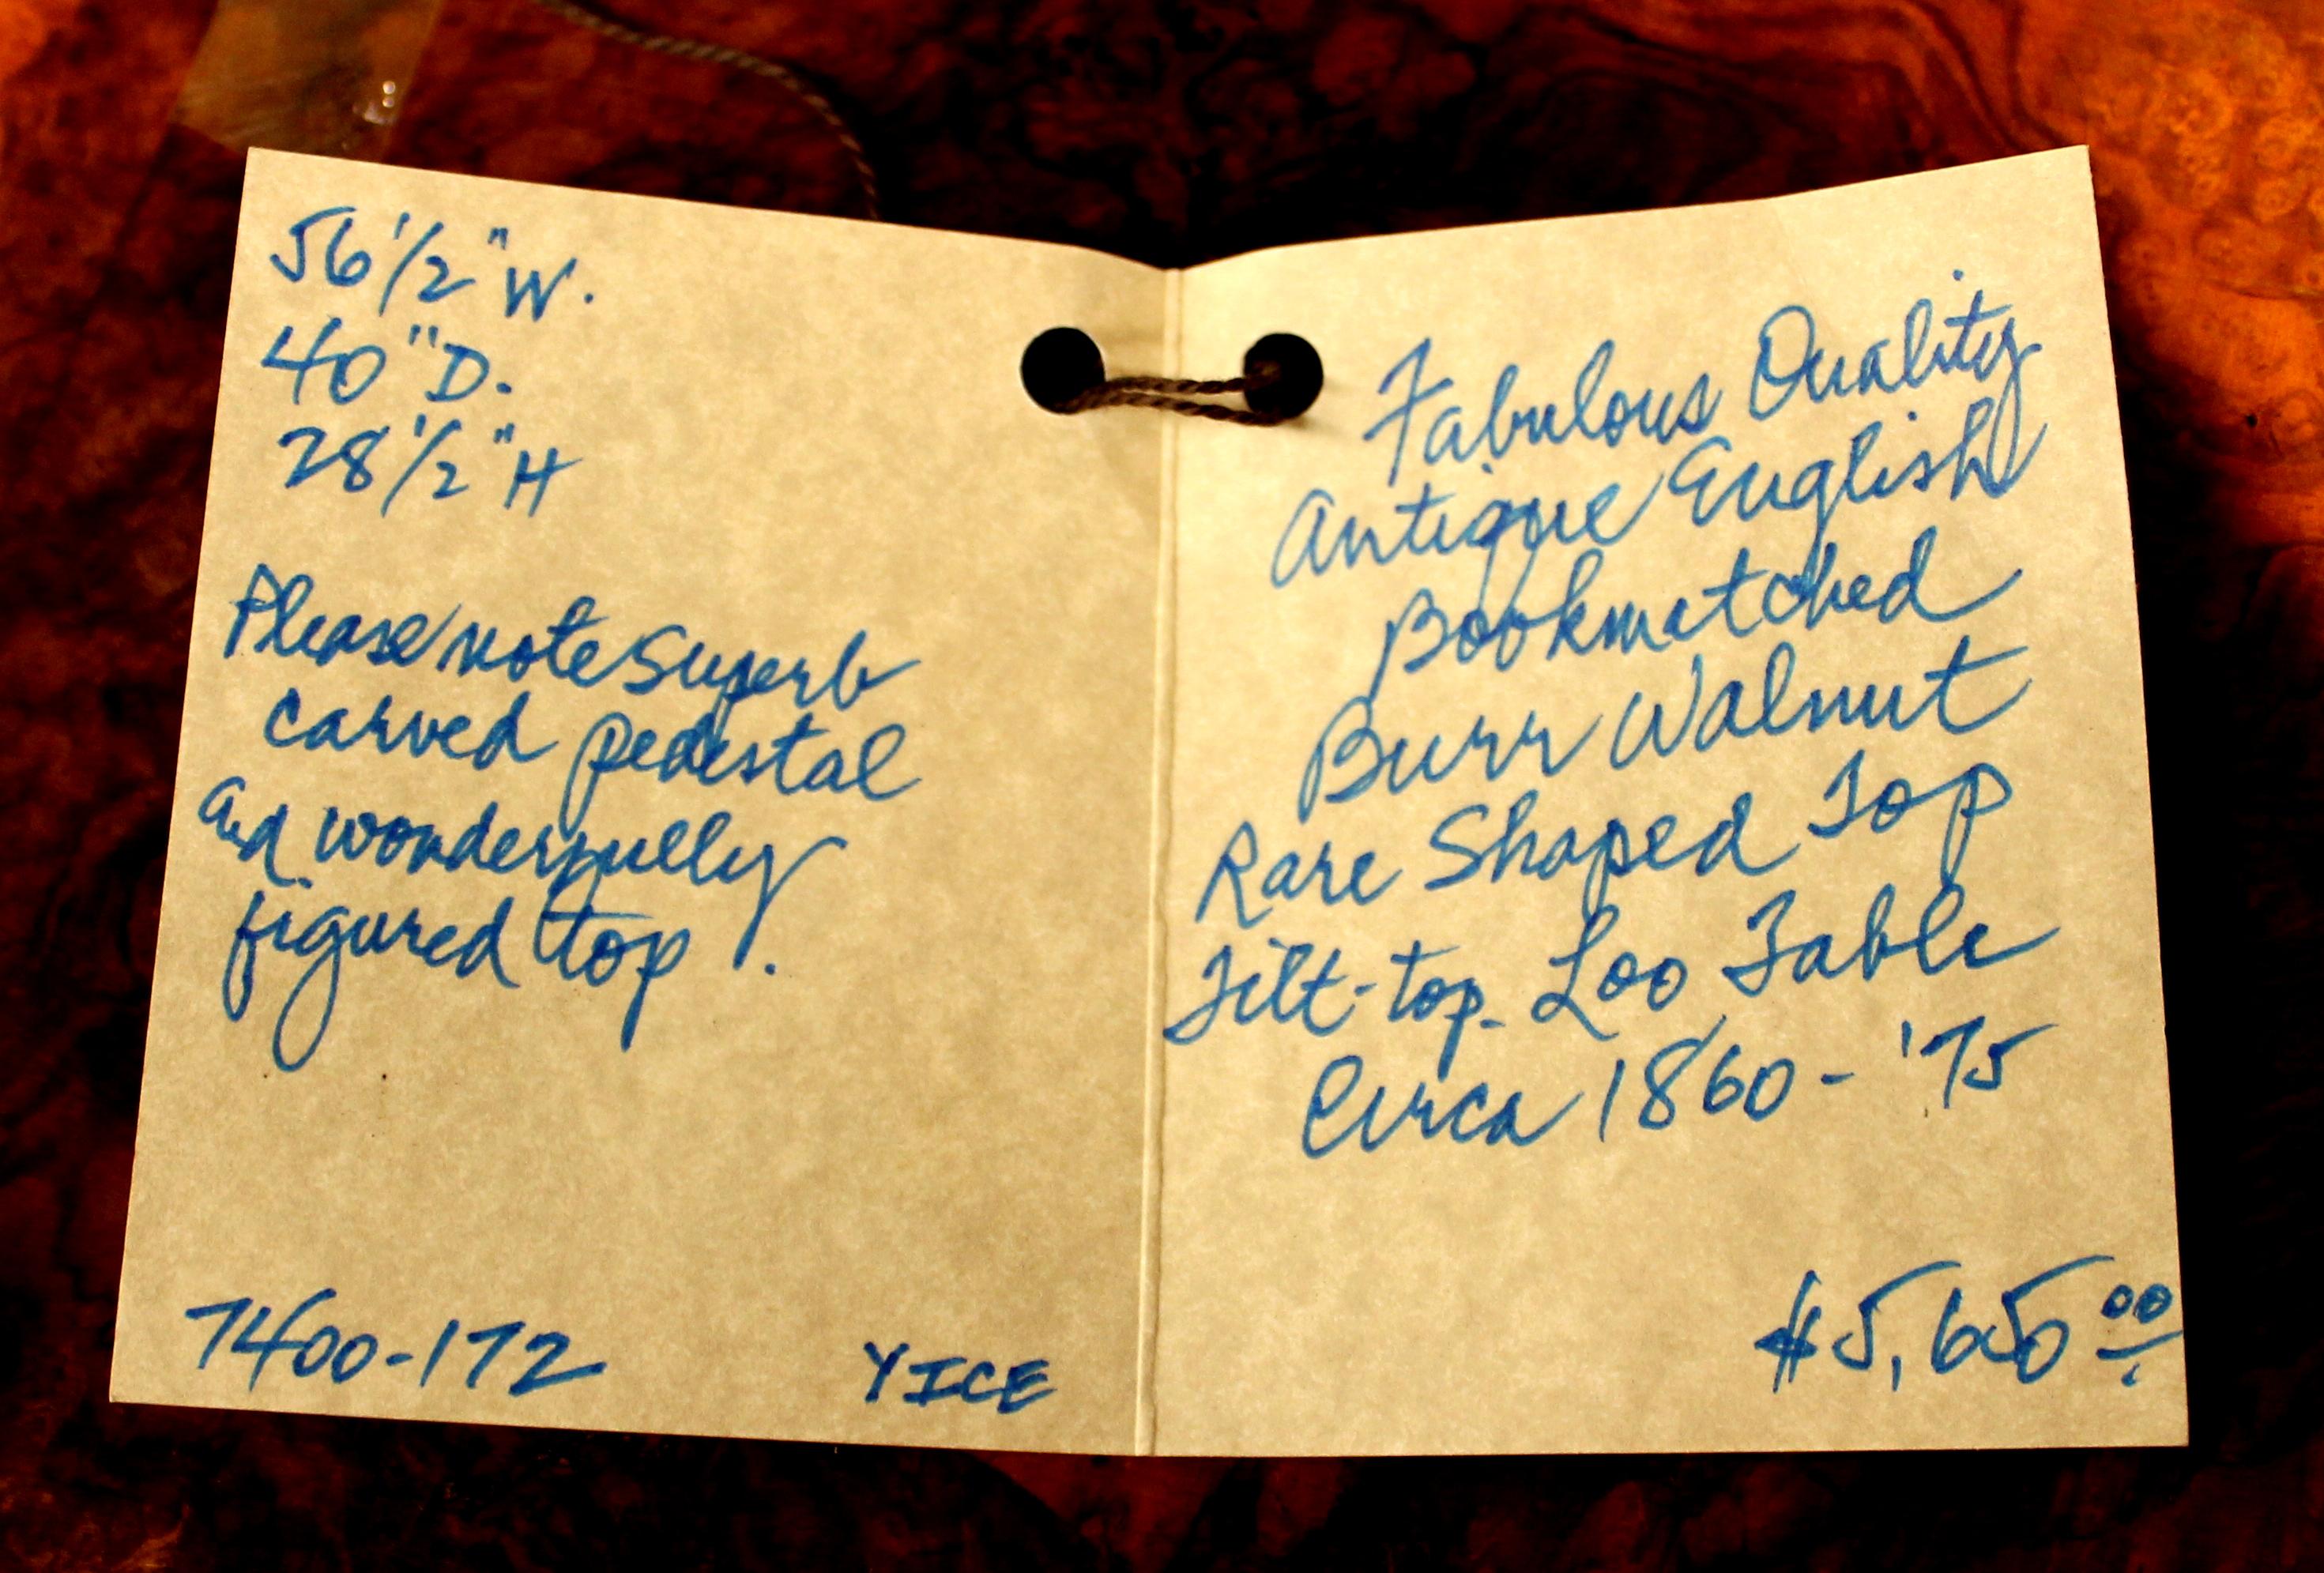 56 1/2" W.
40" D.
28 1/2" H
Please note Superb
carved pedestal
and wonderfully
figured top.
7400-172
YICE
Fabulous Quality
Antique English
Bookmatched
Burr Walnut
Rare Shaped Top
Tilt-top Loo Table
Circa 1860-'75
$5,650.00